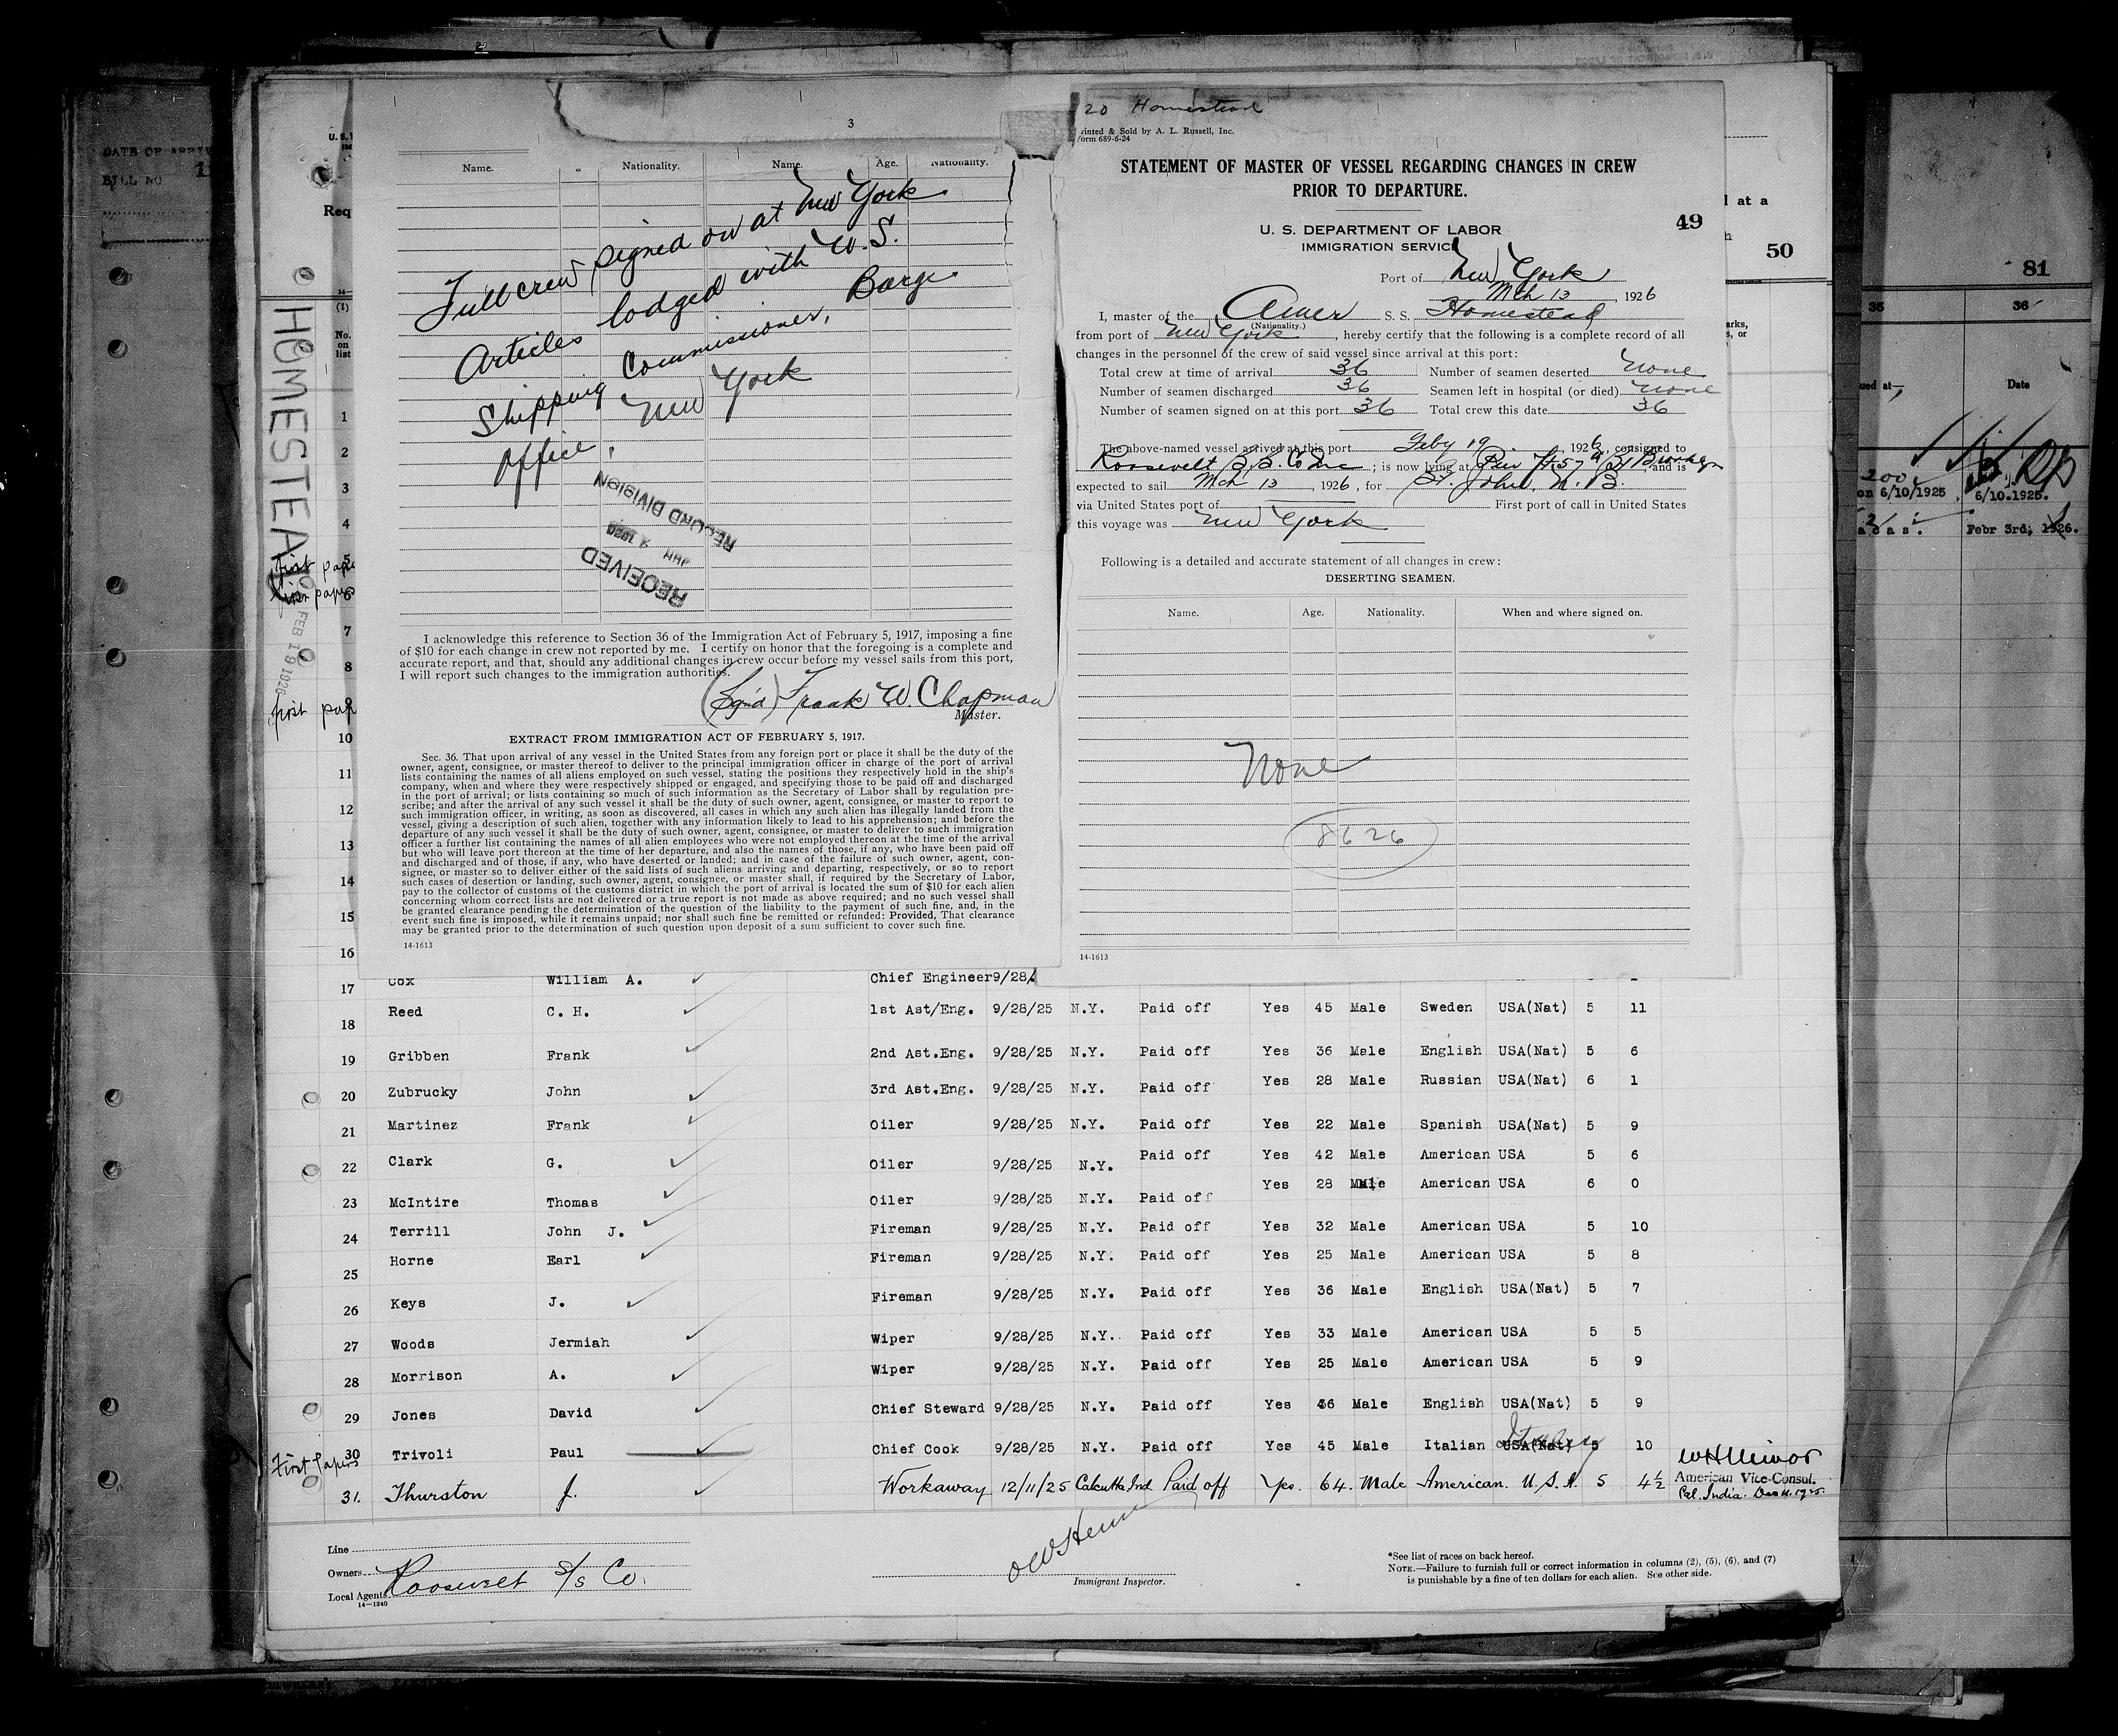 3
Name. Nationality. Name. Age. Nationality.
Full crew signed on at New York
Articles lodged with U.S.
Shipping Commissioner, Barge
Office, New York
RECORD DIVISION
RECEIVED
I acknowledge this reference to Section 36 of the Immigration Act of February 5, 1917, imposing a fine
of $10 for each change in crew not reported by me. I certify on honor that the foregoing is a complete and
accurate report, and that, should any additional changes in crew occur before my vessel sails from this port,
I will report such changes to the immigration authorities.
(Sgn'd) Frank W. Chapman
Master.
EXTRACT FROM IMMIGRATION ACT OF FEBRUARY 5, 1917.
Sec. 36. That upon arrival of any vessel in the United States from any foreign port or place it shall be the duty of the
owner, agent, consignee, or master thereof to deliver to the principal immigration officer in charge of the port of arrival
lists containing the names of all aliens employed on such vessel, stating the positions they respectively hold in the ship's
company, when and where they were respectively shipped or engaged, and specifying those to be paid off and discharged
in the port of arrival; or lists containing so much of such information as the Secretary of Labor shall by regulation pre-
scribe; and after the arrival of any such vessel it shall be the duty of such owner, agent, consignee, or master to report to
such immigration officer, in writing, as soon as discovered, all cases in which any such alien has illegally landed from the
vessel, giving a description of such alien, together with any information likely to lead to his apprehension; and before the
departure of any such vessel it shall be the duty of such owner, agent, consignee, or master to deliver to such immigration
officer a further list containing the names of all alien employees who were not employed thereon at the time of the arrival
but who will leave port thereon at the time of her departure, and also the names of those, if any, who have been paid off
and discharged and of those, if any, who have deserted or landed; and in case of the failure of such owner, agent, con-
signee, or master so to deliver either of the said lists of such aliens arriving and departing, respectively, or so to report
such cases of desertion or landing, such owner, agent, consignee, or master shall, if required by the Secretary of Labor,
pay to the collector of customs of the customs district in which the port of arrival is located the sum of $10 for each alien
concerning whom correct lists are not delivered or a true report is not made as above required; and no such vessel shall
be granted clearance pending the determination of the question of the liability to the payment of such fine, and, in the
event such fine is imposed, while it remains unpaid; nor shall such fine be remitted or refunded: Provided, That clearance
may be granted prior to the determination of such question upon deposit of a sum sufficient to cover such fine.
14-1613
20 Homestead
Printed & Sold by A. L. Russell, Inc.
Form 689-6-24
STATEMENT OF MASTER OF VESSEL REGARDING CHANGES IN CREW
PRIOR TO DEPARTURE.
49
U. S. DEPARTMENT OF LABOR
IMMIGRATION SERVICE
Port of New York
Mch 13, 1926
I, master of the Amer S. S. Homestead
(Nationality.)
from port of New York, hereby certify that the following is a complete record of all
changes in the personnel of the crew of said vessel since arrival at this port:
Total crew at time of arrival 36 Number of seamen deserted None
Number of seamen discharged 36 Seamen left in hospital (or died) None
Number of seamen signed on at this port 36 Total crew this date 36
The above-named vessel arrived at this port Feby 19, 1926, consigned to
Roosevelt S.S. Co Inc; is now lying at Pier ft 57th St Brooklyn and is
expected to sail Mch 13, 1926, for St. John, N. B.
via United States port of First port of call in United States
this voyage was New York
Following is a detailed and accurate statement of all changes in crew:
DESERTING SEAMEN.
Name. Age. Nationality. When and where signed on.
None
8626
14-1613
DATE OF ARRIV
BILL NO
HOMESTEAD
FEB 19 1926
Req
(1)
No.
on
list
at a
50
81
35 36
Date
200
on 6/10/1925 6/10.1925.
Febr 3rd, 1926.
1
2
3
4
5 first pape
6 first papers
7
8
9 first pap
10
11
12
13
14
15
16
17 Cox William A. Chief Engineer 9/28/
18 Reed C. H. 1st Ast/Eng. 9/28/25 N.Y. Paid off Yes 45 Male Sweden USA(Nat) 5 11
19 Gribben Frank 2nd Ast.Eng. 9/28/25 N.Y. Paid off Yes 36 Male English USA(Nat) 5 6
20 Zubrucky John 3rd Ast.Eng. 9/28/25 N.Y. Paid off Yes 28 Male Russian USA(Nat) 6 1
21 Martinez Frank Oiler 9/28/25 N.Y. Paid off Yes 22 Male Spanish USA(Nat) 5 9
22 Clark G. Oiler 9/28/25 N.Y. Paid off Yes 42 Male American USA 5 6
23 McIntire Thomas Oiler 9/28/25 N.Y. Paid off Yes 28 Male American USA 6 0
24 Terrill John J. Fireman 9/28/25 N.Y. Paid off Yes 32 Male American USA 5 10
25 Horne Earl Fireman 9/28/25 N.Y. Paid off Yes 25 Male American USA 5 8
26 Keys J. Fireman 9/28/25 N.Y. Paid off Yes 36 Male English USA(Nat) 5 7
27 Woods Jermiah Wiper 9/28/25 N.Y. Paid off Yes 33 Male American USA 5 5
28 Morrison A. Wiper 9/28/25 N.Y. Paid off Yes 25 Male American USA 5 9
29 Jones David Chief Steward 9/28/25 N.Y. Paid off Yes 46 Male English USA(Nat) 5 9
First Papers 30 Trivoli Paul Chief Cook 9/28/25 N.Y. Paid off Yes 45 Male Italian USA(Nat) Italy 5 10
31. Thurston J. Workaway 12/11/25 Calcutta Ind. Paid off Yes. 64. Male American. U.S.A. 5 4½
WH Minor
American Vice-Consul.
Cal. India. Dec 11. 1925.
Line
Owners
Local Agents Roosevelt S/S Co.
14—1240
Immigrant Inspector.
*See list of races on back hereof.
NOTE.—Failure to furnish full or correct information in columns (2), (5), (6), and (7)
is punishable by a fine of ten dollars for each alien. See other side.